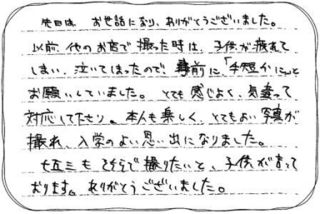 先日は、お世話になり、ありがとうございました。
以前、他のお店で撮った時は、子供が疲れて
しまい、泣いてしまったので、事前に「手短かに」と
お願いしていました。とても感じよく、気遣って
対応して下さり。本人も楽しく、とてもよい写真が
撮れ、入学のよい思い出になりました。
七五三もそちらで撮りたいと、子供が言って
おります。ありがとうございました。